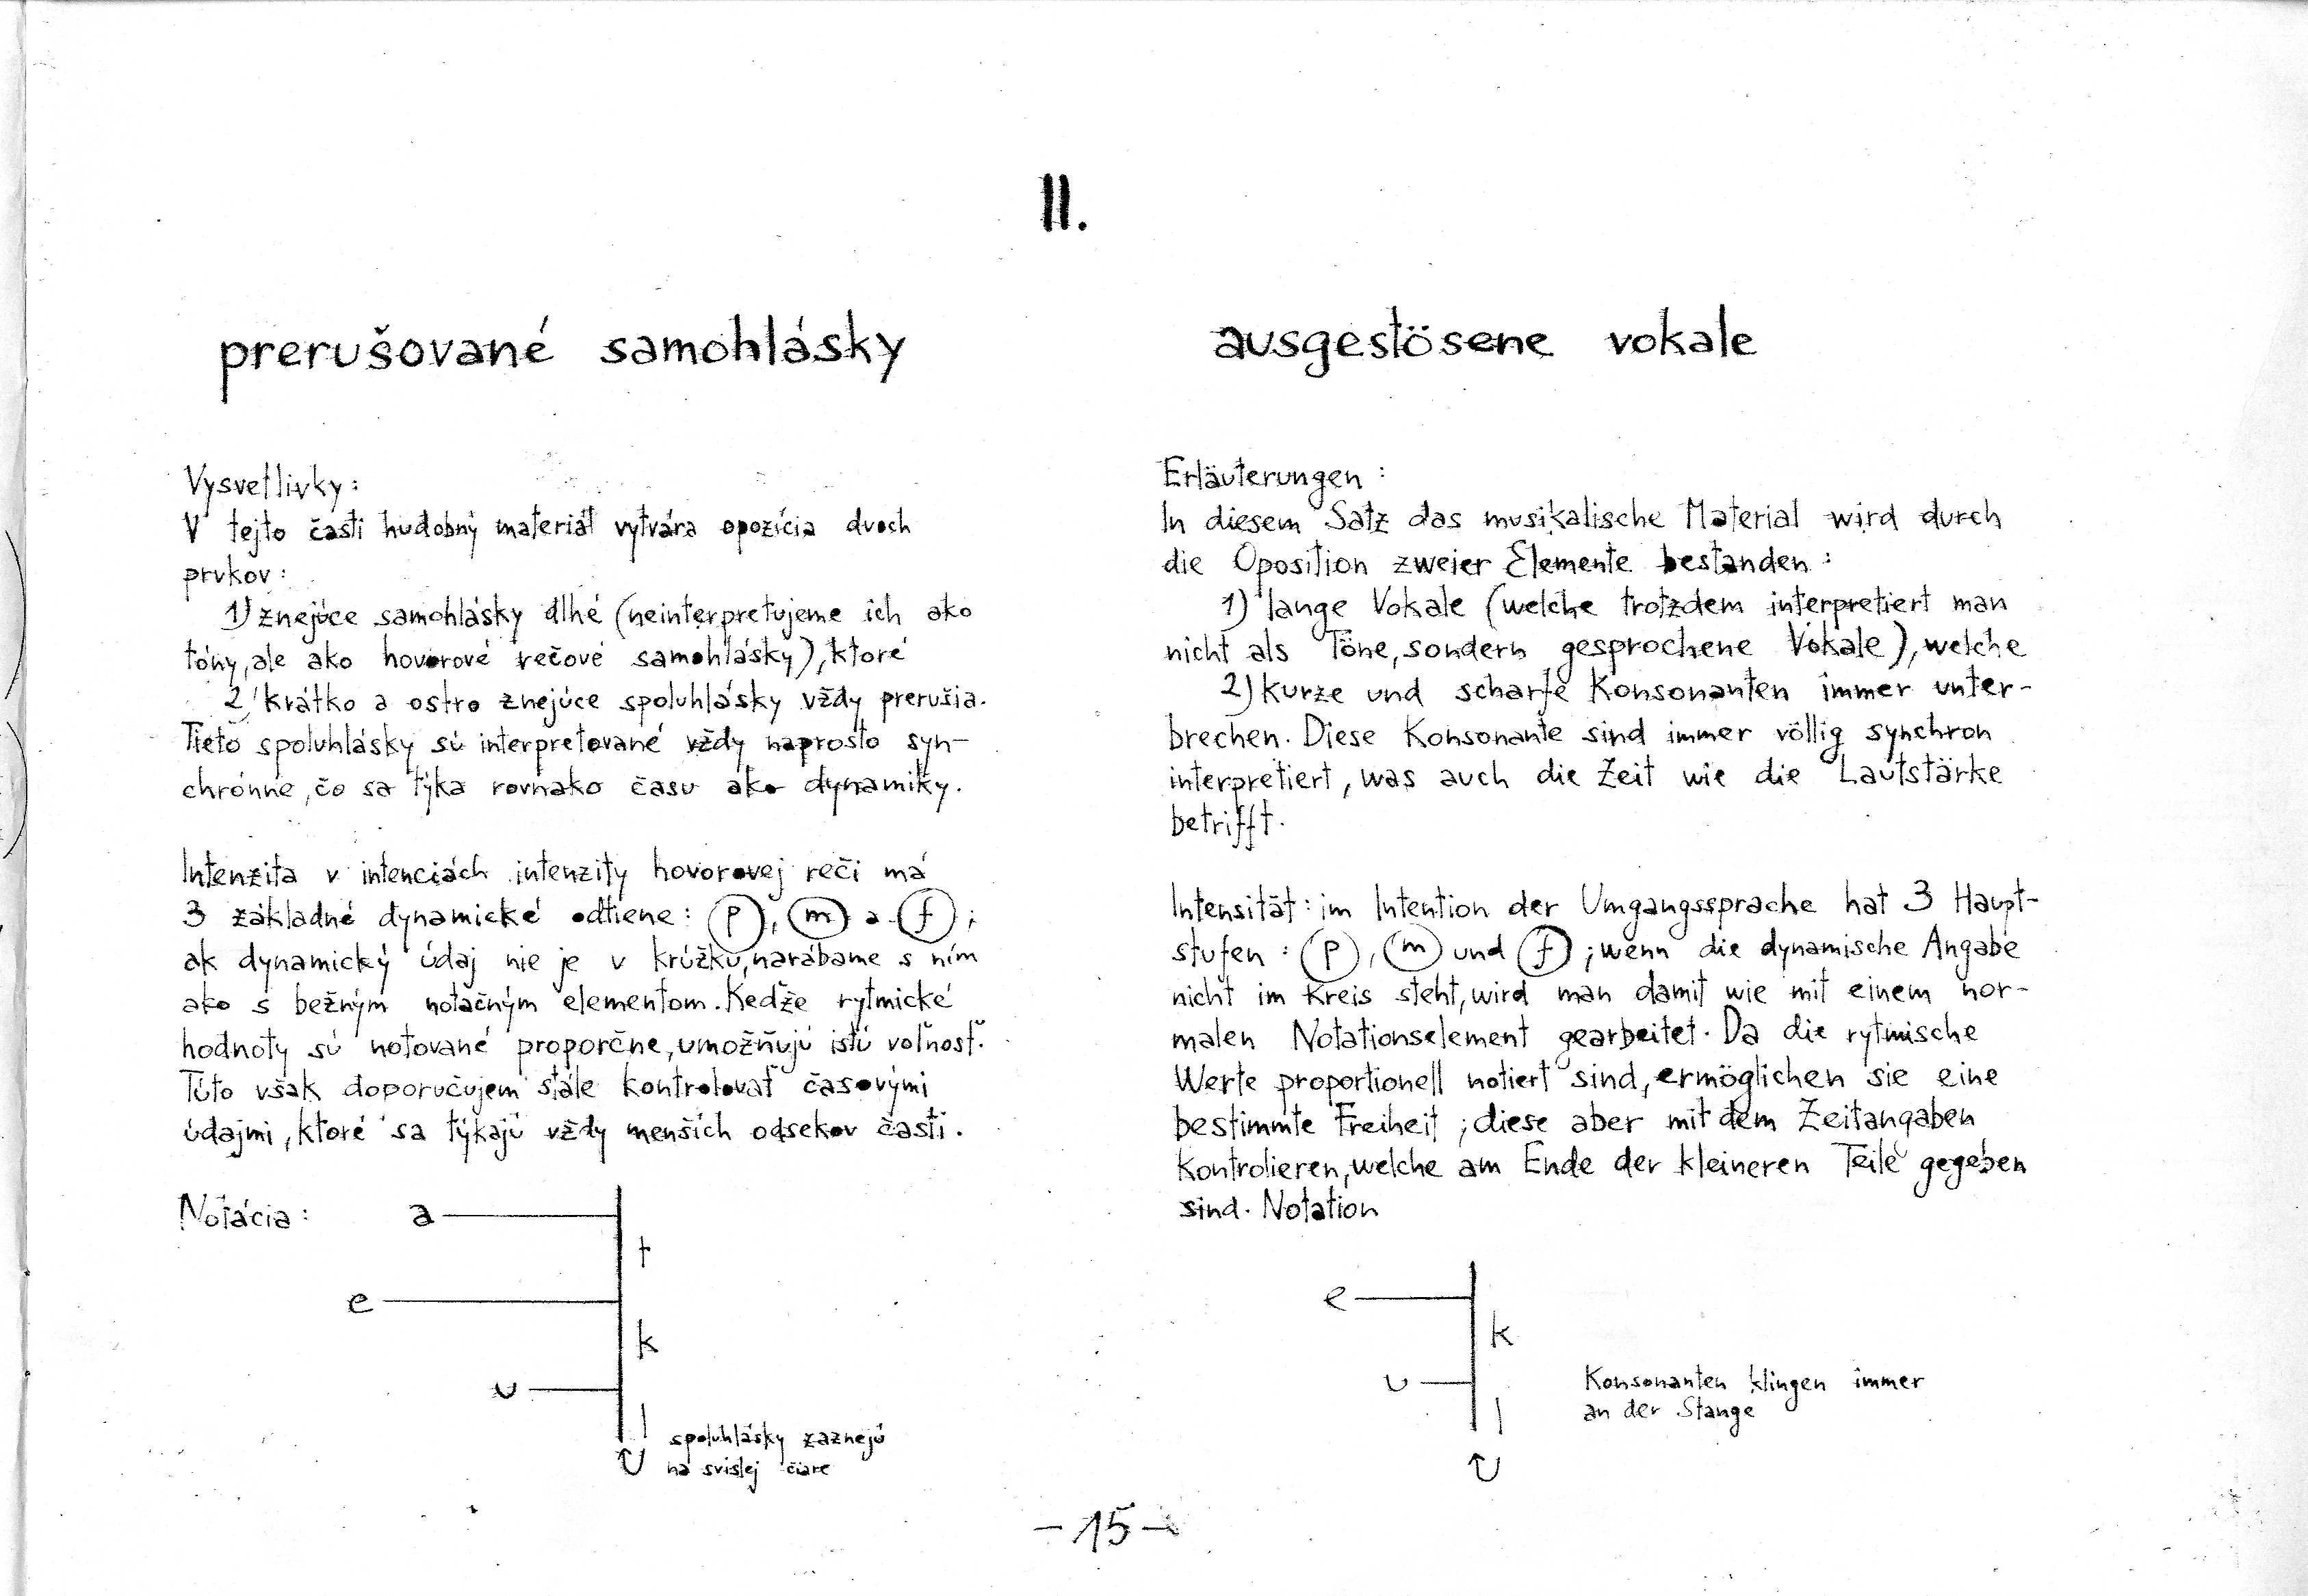 II.
prerušované samohlásky
Vysvetlivky:
V tejto časti hudobný materiál vytvára opozícia dvoch
prvkov:
1) znejúce samohlásky dlhé (neinterpretujeme ich ako
tóny, ale ako hovorové rečové samohlásky), ktoré
2) krátko a ostro znejúce spoluhlásky vždy prerušia.
Tieto spoluhlásky sú interpretované vždy naprosto syn-
chrónne, čo sa týka rovnako času ako dynamiky.
Intenzita v intenciách intenzity hovorovej reči má
3 základné dynamické odtiene: p, m a f;
ak dynamický údaj nie je v krúžku, narábame s ním
ako s bežným notačným elementom. Keďže rytmické
hodnoty sú notované proporčne, umožňujú istú voľnosť.
Túto však doporučujem stále kontrolovať časovými
údajmi, ktoré sa týkajú vždy menších odsekov časti.
Notácia:
a
t
e
k
u
l
spoluhlásky zaznejú
na svislej čiare
ausgestösene vokale
Erläuterungen:
In diesem Satz das musikalische Material wird durch
die Oposition zweier Elemente bestanden:
1) lange Vokale (welche trotzdem interpretiert man
nicht als Töne, sondern gesprochene Vokale), welche
2) kurze und scharfe Konsonanten immer unter-
brechen. Diese Konsonante sind immer völlig synchron
interpretiert, was auch die Zeit wie die Lautstärke
betrifft.
Intensität: im Intention der Umgangssprache hat 3 Haupt-
stufen: p, m und f; wenn die dynamische Angabe
nicht im Kreis steht, wird man damit wie mit einem nor-
malen Notationselement gearbeitet. Da die rytmische
Werte proportionell notiert sind, ermöglichen sie eine
bestimmte Freiheit; diese aber mit dem Zeitangaben
kontrolieren, welche am Ende der kleineren Teile gegeben
sind. Notation
e
k
u
l
Konsonanten klingen immer
an der Stange
-15-